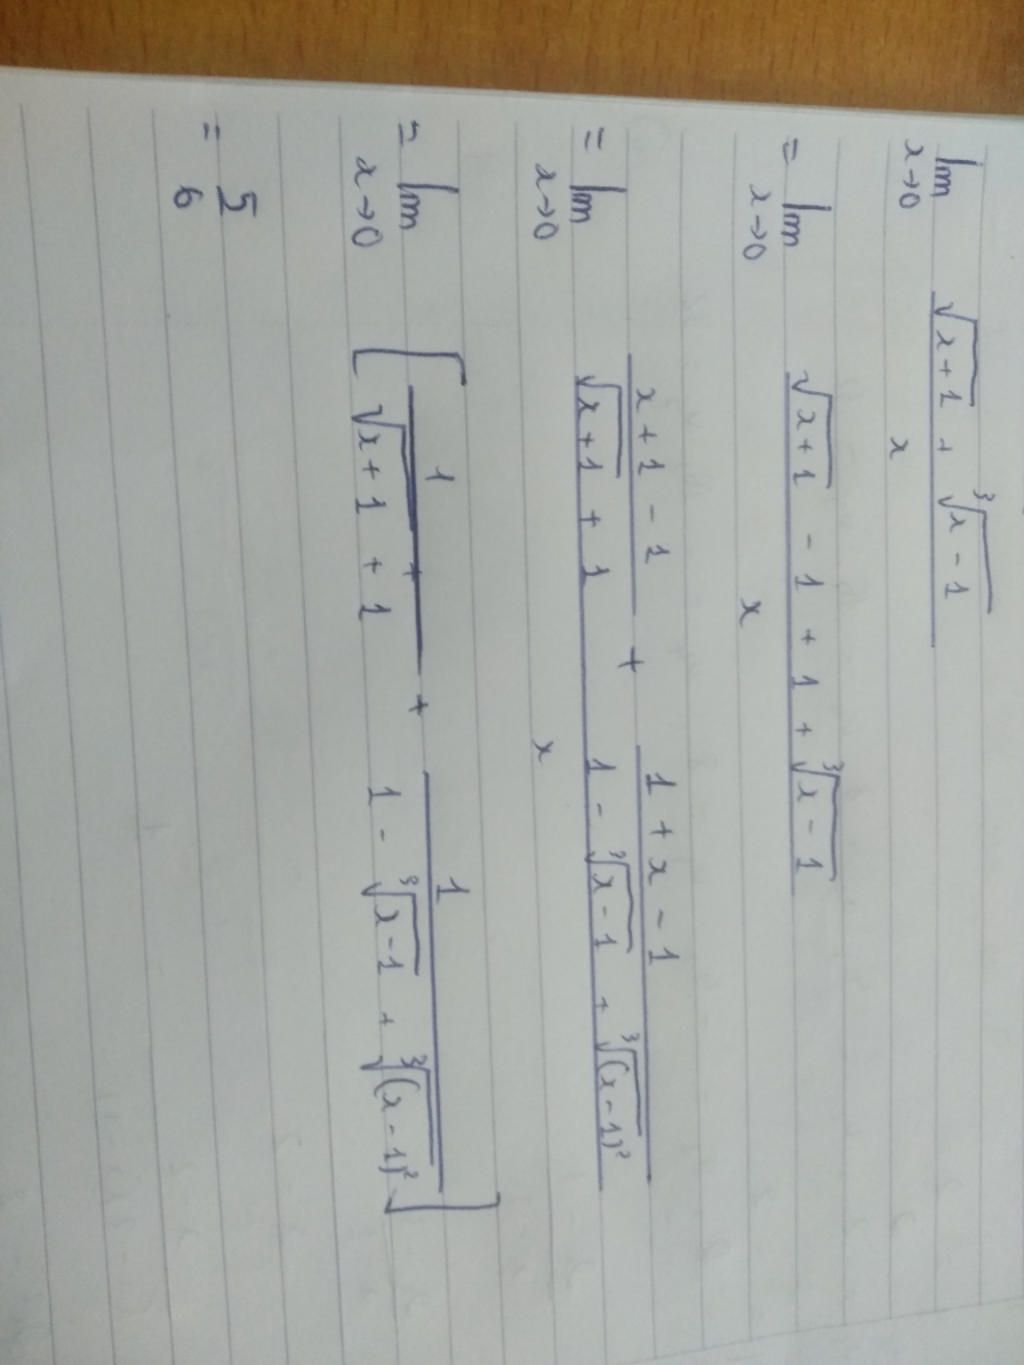 lim x→0 (√(x+1) + ∛(x-1)) / x
= lim x→0 (√(x+1) - 1 + 1 + ∛(x-1)) / x
= lim x→0 ((x+1-1)/(√(x+1) + 1) + (1+x-1)/(1 - ∛(x-1) + ∛((x-1)²))) / x
= lim x→0 [1/(√(x+1) + 1) + 1/(1 - ∛(x-1) + ∛((x-1)²))]
= 5/6